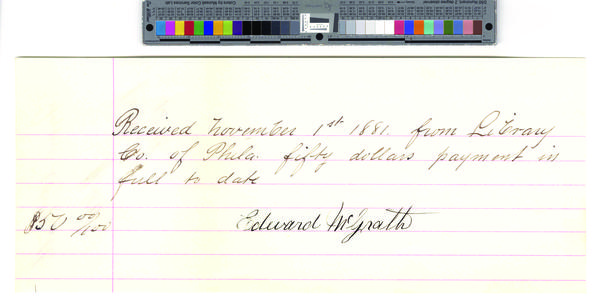 Received November 1st 1881. from Library
Co. of Phila. fifty dollars payment in
full to date
$50 00/100 Edward McGrath